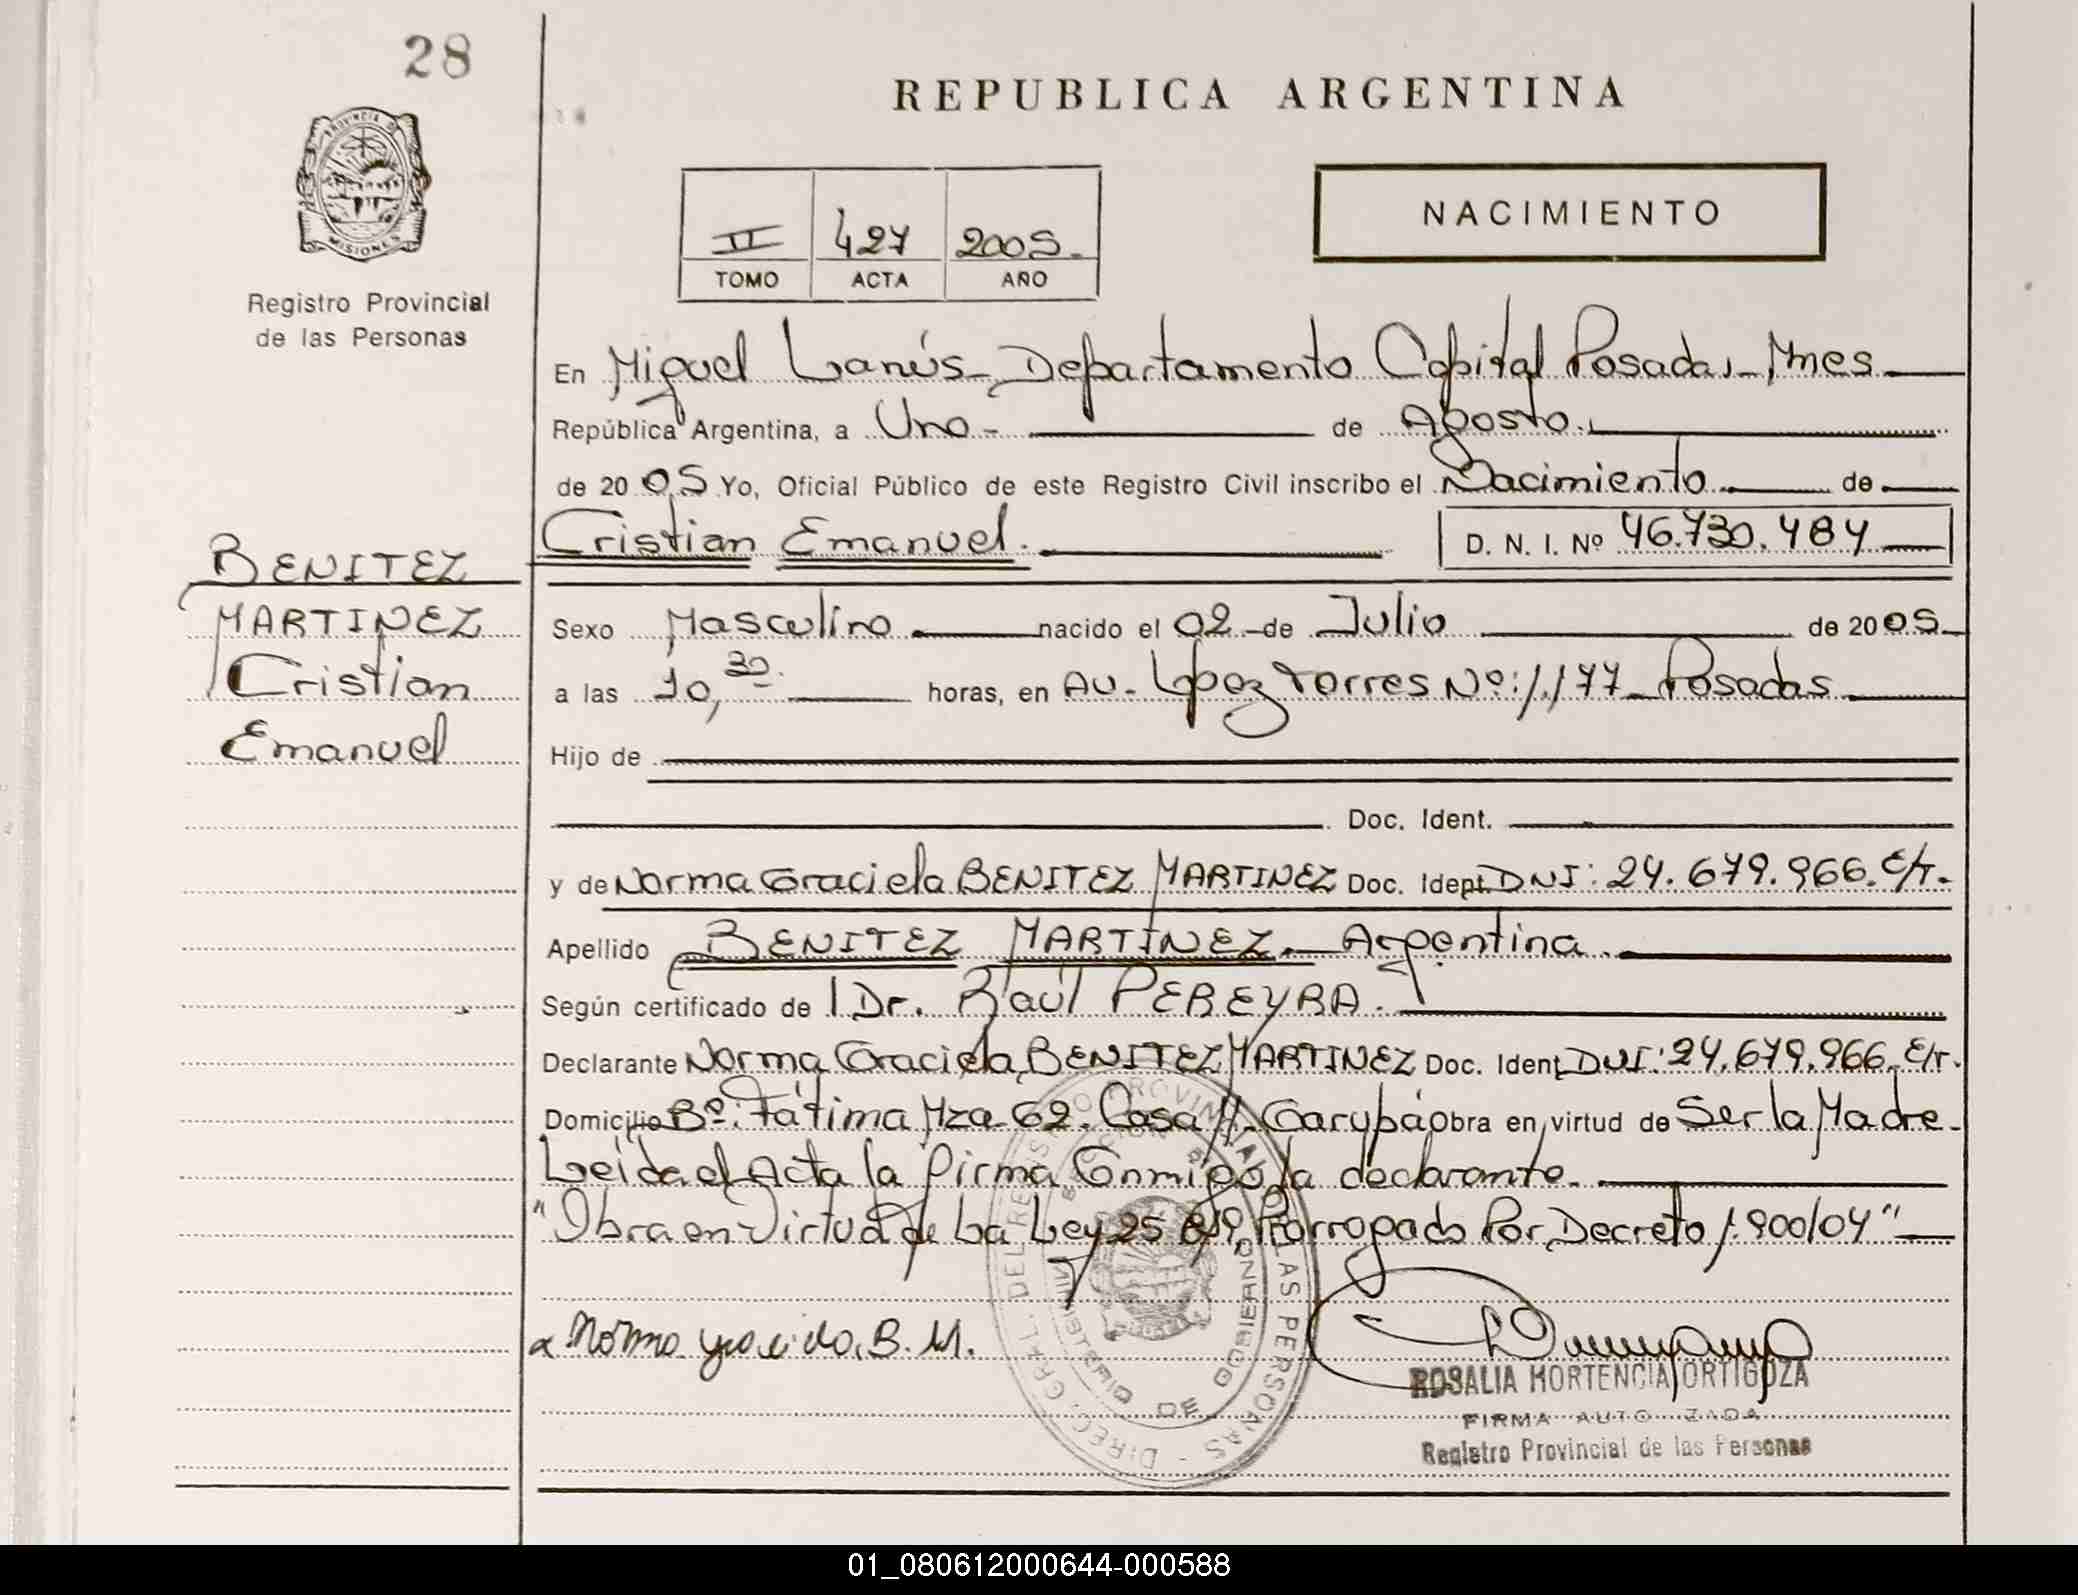 28
REPUBLICA ARGENTINA
PROVINCIA DE
MISIONES
Registro Provincial
de las Personas
NACIMIENTO
II 427 2005.
TOMO ACTA AÑO
En Miguel Lanús - Departamento Capital Posadas - Mnes
República Argentina, a Uno - de Agosto.
de 2005 Yo, Oficial Público de este Registro Civil inscribo el Nacimiento de
Cristian Emanuel. D. N. I. Nº 46.730.484
BENITEZ
MARTINEZ
Cristian
Emanuel
Sexo Masculino nacido el 02 - de Julio de 2005.
a las 10,30 horas, en AV. López Torres Nº: 1.177 - Posadas
Hijo de
Doc. Ident.
y de Norma Graciela BENITEZ MARTINEZ Doc. Ident. DNI: 24.679.966. E/T.
Apellido BENITEZ MARTINEZ. Argentina
Según certificado de Dr. Raúl PEREYRA.
Declarante Norma Graciela BENITEZ MARTINEZ Doc. Ident. DNI: 24.679.966. E/T.
Domicilio Bº: Fátima Mza 62. Casa Garupá Obra en virtud de Ser la Madre.
Leida el Acta la firma Conmigo la declarante.
"Obra en Virtud de La Ley 25 819, Prorrogado Por Decreto 1.900/04"
Norma graciela. B. M.
DIREC. GRAL. DEL REGISTRO PROVINCIAL DE LAS PERSONAS
MINISTERIO DE GOBIERNO
ROSALIA HORTENCIA ORTIGOZA
FIRMA AUTORIZADA
Registro Provincial de las Personas
01_080612000644-000588